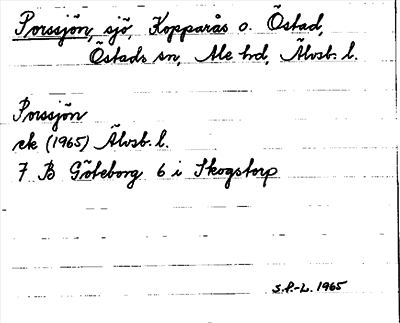 Porssjön, sjö, Kopparås o. Östad,
Östads sn, Ale hd, Älvsb. l.
Porssjön
ek (1965) Älvsb. l.
7 B Göteborg 6 i Skogstorp
S.P.-L. 1965